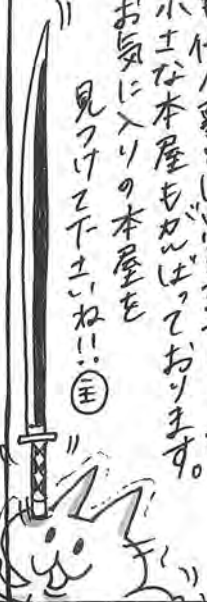 小さな本屋もがんばっております。
お気に入りの本屋を
見つけて下さいね!! 主